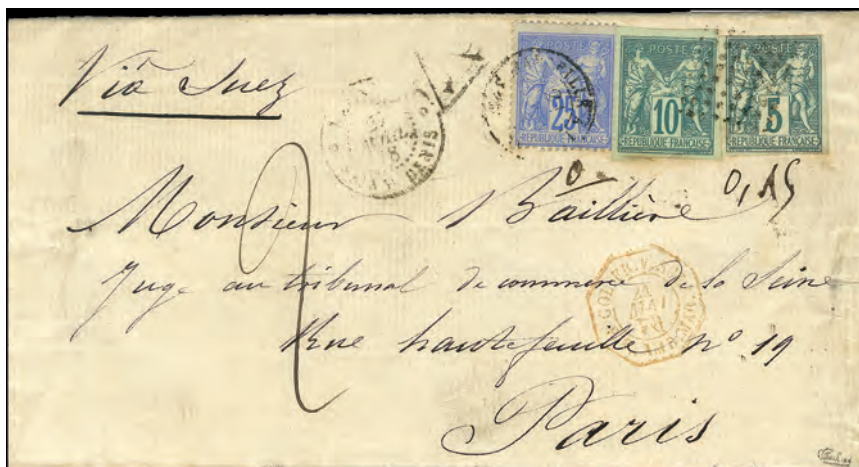 Via Suez
POSTE
25
REPUBLIQUE FRANÇAISE
POSTE
10
REPUBLIQUE FRANÇAISE
POSTE
5
REPUBLIQUE FRANÇAISE
AVRIL
DENIS
0,15
Monsieur Baillière
Juge au tribunal de commerce de la Seine
MAI
Rue hautefeuille nº 19
Paris